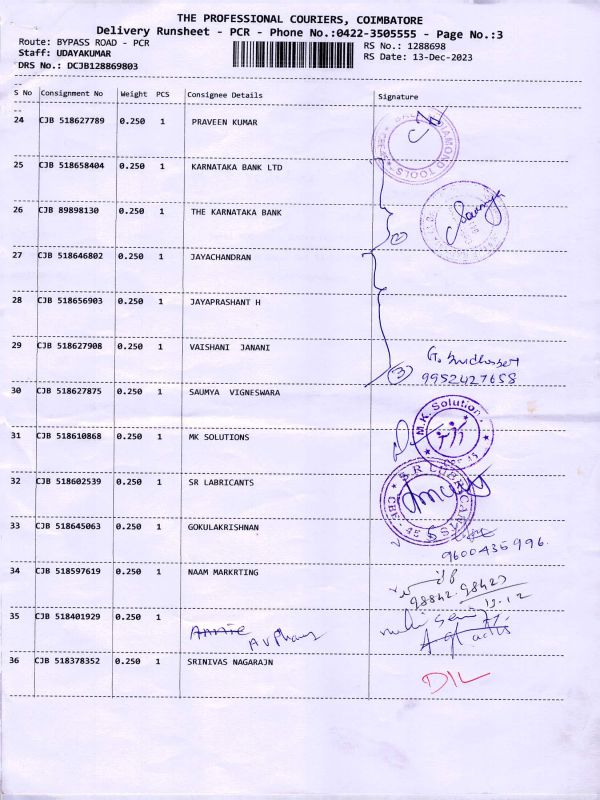 THE PROFESSIONAL COURIERS, COIMBATORE
Delivery Runsheet - PCR - Phone No.:0422-3505555 - Page No.:3
Route: BYPASS ROAD - PCR
RS No.: 1288698
Staff: UDAYAKUMAR
RS Date: 13-Dec-2023
DRS No.: DCJB128869803
S No Consignment No Weight PCS Consignee Details Signature
24 CJB 518627789 0.250 1 PRAVEEN KUMAR
DIAMOND TOOLS
25 CJB 518658404 0.250 1 KARNATAKA BANK LTD
26 CJB 89898130 0.250 1 THE KARNATAKA BANK
2
27 CJB 518646802 0.250 1 JAYACHANDRAN
28 CJB 518656903 0.250 1 JAYAPRASHANT H
29 CJB 518627908 0.250 1 VAISHANI JANANI
3
9952427658
30 CJB 518627875 0.250 1 SAUMYA VIGNESWARA
M.K. Solution
31 CJB 518610868 0.250 1 MK SOLUTIONS
32 CJB 518602539 0.250 1 SR LABRICANTS
S R LUBRICANTS
CBE - 45
33 CJB 518645063 0.250 1 GOKULAKRISHNAN
9600435996.
34 CJB 518597619 0.250 1 NAAM MARKRTING
98842-98423
13-12
35 CJB 518401929 0.250 1
36 CJB 518378352 0.250 1 SRINIVAS NAGARAJN
DIL